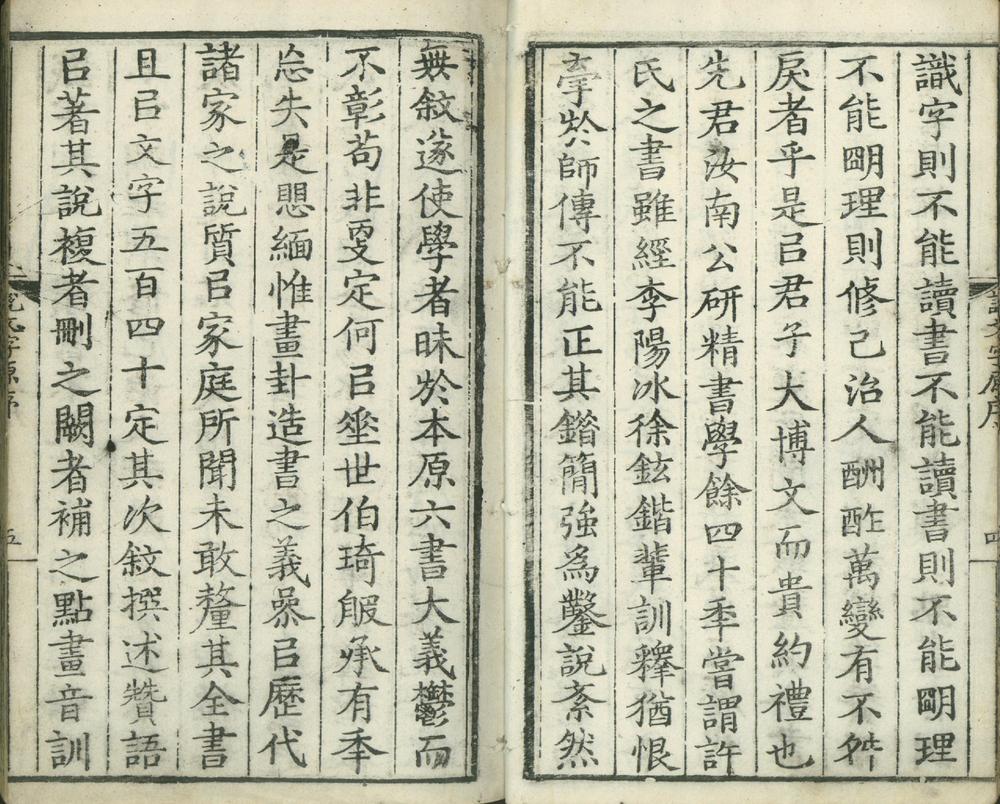 識字則不能讀書不能讀書則不能朙理
不能朙理則修己治人酬酢萬變有不舛
戾者乎是㠯君子大博文而貴約禮也
先君汝南公研精書學餘四十季嘗謂許
氏之書雖經李陽冰徐鉉鍇輩訓釋猶恨
牽於師傳不能正其鐕簡強為鑿說紊然
無敘遂使學者昧於本原六書大義鬱而
不彰苟非更定何㠯垂世伯琦服承有秊
忘失是懼緬惟畫卦造書之義參㠯歷代
諸家之說質㠯家庭所聞未敢釐其全書
且㠯文字五百四十定其次敘撰述贊語
㠯著其說複者刪之闕者補之點畫音訓
說文字原序
四
五